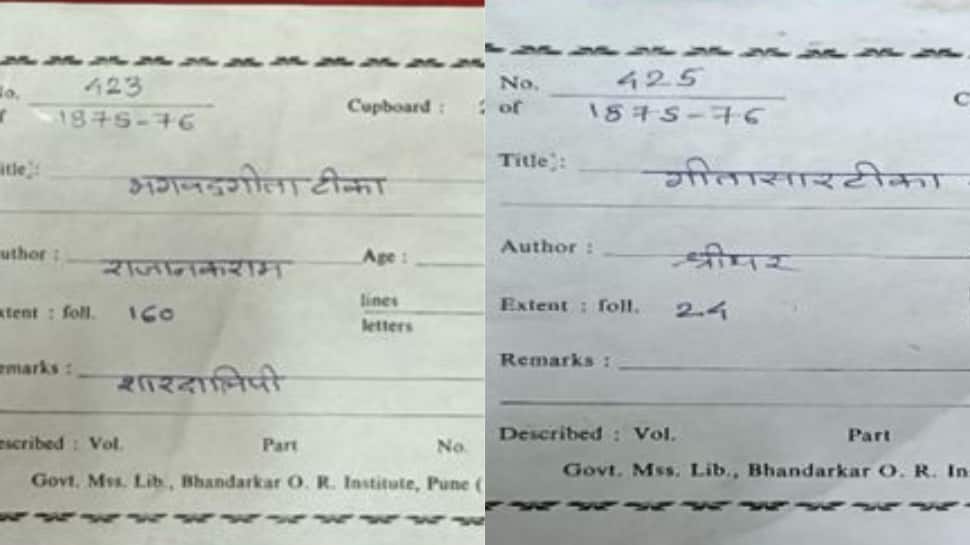 No. 423
of 1875-76
Cupboard :
Title :
भगवद्गीता टीका
Author : राजानकराम
Age :
Extent : foll. 160
lines
letters
Remarks :
शारदालिपी
Described : Vol. Part No.
Govt. Mss. Lib., Bhandarkar O. R. Institute, Pune (
No. 425
of 1875-76
C
Title : गीतासारटीका
Author :
श्रीधर
Extent : foll. 24
Remarks :
Described : Vol. Part
Govt. Mss. Lib., Bhandarkar O. R. In